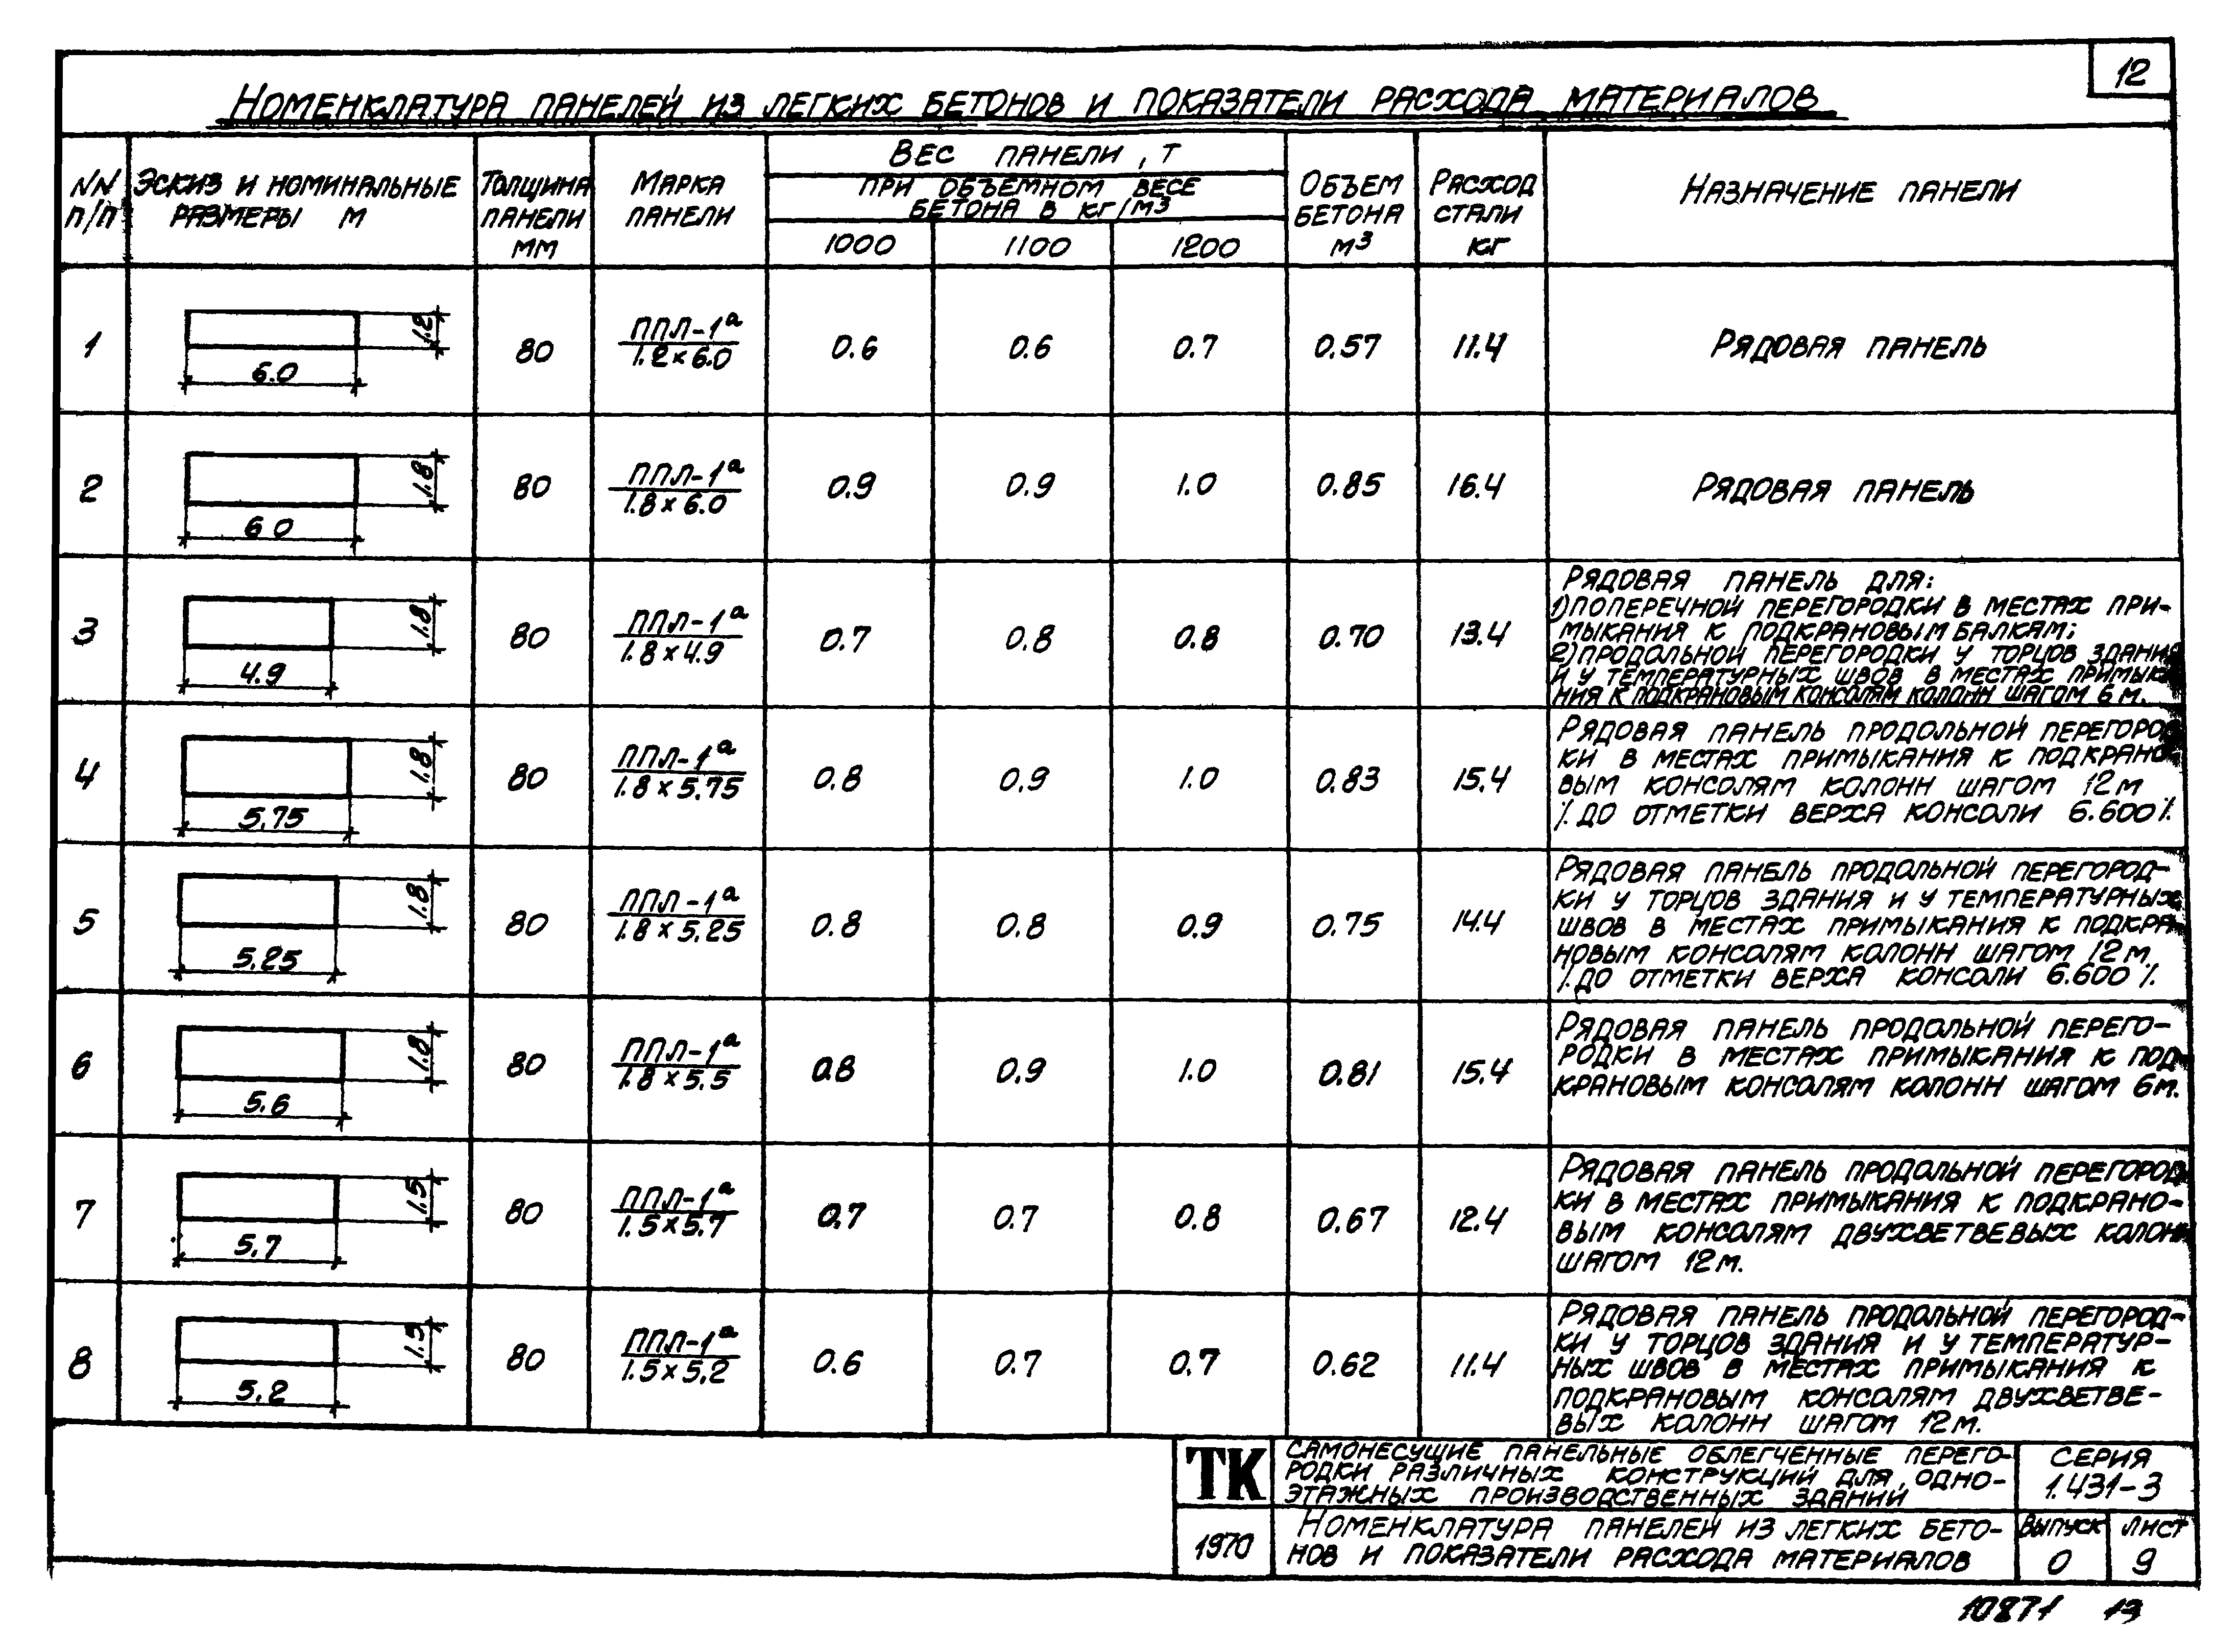 12
НОМЕНКЛАТУРА ПАНЕЛЕЙ ИЗ ЛЕГКИХ БЕТОНОВ И ПОКАЗАТЕЛИ РАСХОДА МАТЕРИАЛОВ
NN П/П
ЭСКИЗ И НОМИНАЛЬНЫЕ РАЗМЕРЫ М
ТОЛЩИНА ПАНЕЛИ ММ
МАРКА ПАНЕЛИ
ВЕС ПАНЕЛИ, Т
ПРИ ОБЪЕМНОМ ВЕСЕ
БЕТОНА В КГ/М³
1000 1100 1200
ОБЪЕМ БЕТОНА М³
РАСХОД СТАЛИ КГ
НАЗНАЧЕНИЕ ПАНЕЛИ
1 6.0 1.2 80 ППЛ-1ª / 1.2×6.0 0.6 0.6 0.7 0.57 11.4 РЯДОВАЯ ПАНЕЛЬ
2 6 0 1.8 80 ППЛ-1ª / 1.8×6.0 0.9 0.9 1.0 0.85 16.4 РЯДОВАЯ ПАНЕЛЬ
3 4.9 1.8 80 ППЛ-1ª / 1.8×4.9 0.7 0.8 0.8 0.70 13.4
РЯДОВАЯ ПАНЕЛЬ ДЛЯ:
1) ПОПЕРЕЧНОЙ ПЕРЕГОРОДКИ В МЕСТАХ ПРИ-
МЫКАНИЯ К ПОДКРАНОВЫМ БАЛКАМ;
2) ПРОДОЛЬНОЙ ПЕРЕГОРОДКИ У ТОРЦОВ ЗДАНИЯ
И У ТЕМПЕРАТУРНЫХ ШВОВ В МЕСТАХ ПРИМЫКА
НИЯ К ПОДКРАНОВЫМ КОНСОЛЯМ КОЛОНН ШАГОМ 6 М.
4 5.75 1.8 80 ППЛ-1ª / 1.8×5.75 0.8 0.9 1.0 0.83 15.4
РЯДОВАЯ ПАНЕЛЬ ПРОДОЛЬНОЙ ПЕРЕГОРОД
КИ В МЕСТАХ ПРИМЫКАНИЯ К ПОДКРАНО
ВЫМ КОНСОЛЯМ КОЛОНН ШАГОМ 12 М
/. ДО ОТМЕТКИ ВЕРХА КОНСОЛИ 6.600 /.
5 5.25 1.8 80 ППЛ-1ª / 1.8×5.25 0.8 0.8 0.9 0.75 14.4
РЯДОВАЯ ПАНЕЛЬ ПРОДОЛЬНОЙ ПЕРЕГОРОД-
КИ У ТОРЦОВ ЗДАНИЯ И У ТЕМПЕРАТУРНЫХ
ШВОВ В МЕСТАХ ПРИМЫКАНИЯ К ПОДКРА-
НОВЫМ КОНСОЛЯМ КОЛОНН ШАГОМ 12 М
/. ДО ОТМЕТКИ ВЕРХА КОНСОЛИ 6.600 /.
6 5.6 1.8 80 ППЛ-1ª / 1.8×5.5 0.8 0.9 1.0 0.81 15.4
РЯДОВАЯ ПАНЕЛЬ ПРОДОЛЬНОЙ ПЕРЕГО-
РОДКИ В МЕСТАХ ПРИМЫКАНИЯ К ПОД-
КРАНОВЫМ КОНСОЛЯМ КОЛОНН ШАГОМ 6 М.
7 5.7 1.5 80 ППЛ-1ª / 1.5×5.7 0.7 0.7 0.8 0.67 12.4
РЯДОВАЯ ПАНЕЛЬ ПРОДОЛЬНОЙ ПЕРЕГОРОД
КИ В МЕСТАХ ПРИМЫКАНИЯ К ПОДКРАНО-
ВЫМ КОНСОЛЯМ ДВУХВЕТВЕВЫХ КОЛОНН
ШАГОМ 12 М.
8 5.2 1.5 80 ППЛ-1ª / 1.5×5.2 0.6 0.7 0.7 0.62 11.4
РЯДОВАЯ ПАНЕЛЬ ПРОДОЛЬНОЙ ПЕРЕГОРОД-
КИ У ТОРЦОВ ЗДАНИЯ И У ТЕМПЕРАТУР-
НЫХ ШВОВ В МЕСТАХ ПРИМЫКАНИЯ К
ПОДКРАНОВЫМ КОНСОЛЯМ ДВУХВЕТВЕ-
ВЫХ КОЛОНН ШАГОМ 12 М.
ТК
САМОНЕСУЩИЕ ПАНЕЛЬНЫЕ ОБЛЕГЧЕННЫЕ ПЕРЕГО-
РОДКИ РАЗЛИЧНЫХ КОНСТРУКЦИЙ ДЛЯ ОДНО-
ЭТАЖНЫХ ПРОИЗВОДСТВЕННЫХ ЗДАНИЙ
СЕРИЯ
1.431-3
1970
НОМЕНКЛАТУРА ПАНЕЛЕЙ ИЗ ЛЕГКИХ БЕТО-
НОВ И ПОКАЗАТЕЛИ РАСХОДА МАТЕРИАЛОВ
ВЫПУСК ЛИСТ
0 9
10871 13